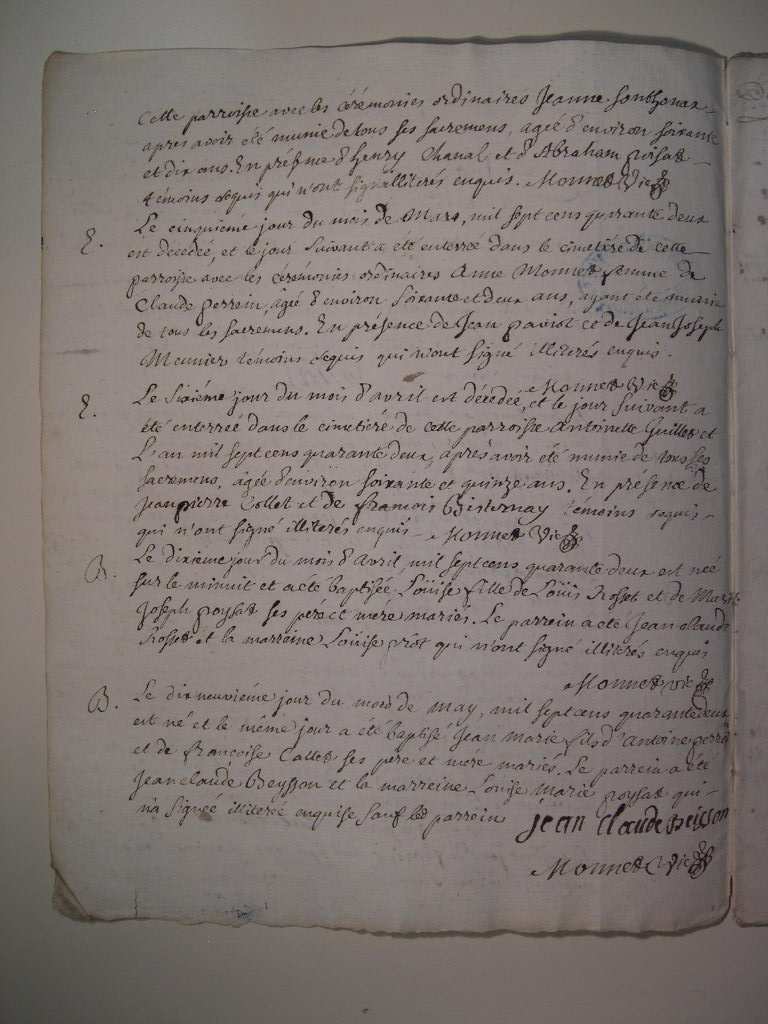 Cette parroisse avec les cérémonies ordinaires Jeanne Sonthonax
apres avoir été munie de tous ses sacremens, agée d'environ soixante
et dix ans. En présence d'henry Chanal et d'Abraham
témoins requis qui n'ont signé illiterés enquis. Monnet Vic
E. Le cinquiéme jour du mois de Mars, mil sept cens quarante deux
est decedée, et le jour suivant a été enterreé dans le cimetiére de cette
parroisse avec les cérémonies ordinaires Anne Monnet femme de
Claude perrein, agée d'environ soixante et deux ans, ayant été munie
de tous les sacremens. En présence de Jean paviot et de Jean Joseph
Meunier témoins requis qui n'ont signé illiterés enquis.
Monnet Vic
E. Le sixiéme jour du mois d'avril est décedeé, et le jour suivant a
été enterreé dans le cimetiére de cette parroisse Antoinette Guillet et
L'an mil sept cens quarante deux, aprés avoir été munie de tous ses
sacremens, agée d'environ soixante et quinze ans. En présence de
Jean pierre Collet et de francois témoins requis
qui n'ont signé illiterés enquis. Monnet Vic
B. Le dixiéme jour du mois d'Avril, mil sept cens quarante deux est neé
sur le minuit et a eté baptisée Loüise fille de Loüis Rosset et de Marie
Joseph poysat ses pere et mere mariés. Le parrein a eté Jean claude
Rosset et la marreine Loüise qui n'ont signé illiterés enquis
Monnet vic
B. Le dix neuviéme jour du mois de may, mil sept cens quarante deux
est né et le même jour a été baptisé Jean Marie fils d'Antoine perrei
et de françoise Collet ses pere et mere mariés. Le parrein a été
Jean claude Beysson et la marreine Loüise Marie poysat qui
n'a signée illitereé enquise sauf led parrein jean claude beisson
Monnet Vic